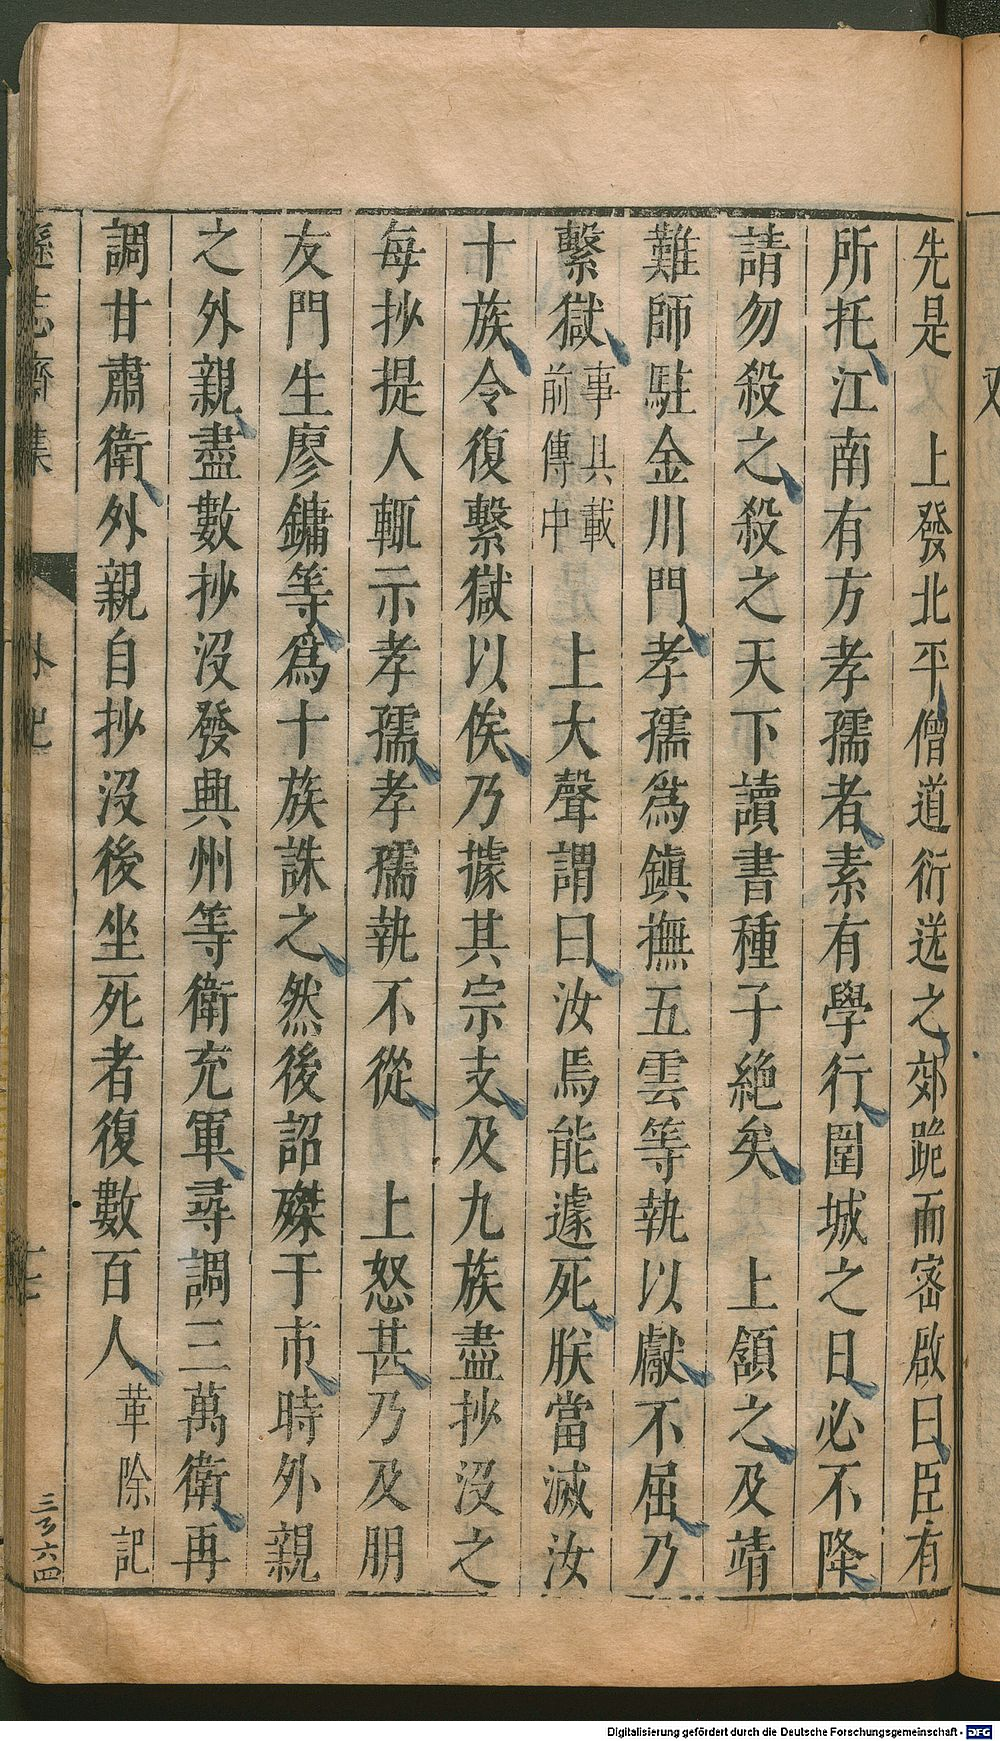 先是　上發北平僧道衍送之郊跪而密啟曰臣有
所托江南有方孝孺者素有學行圍城之日必不降
請勿殺之殺之天下讀書種子絶矣　上頷之及靖
難師駐金川門孝孺爲鎮撫五雲等執以獻不屈乃
繫獄事具載前傳中　上大聲謂曰汝焉能遽死朕當滅汝
十族令復繫獄以俟乃據其宗支及九族盡抄沒之
每抄提人輒示孝孺孝孺執不從　上怒甚乃及朋
友門生廖鏞等爲十族誅之然後詔磔于市時外親
之外親盡數抄沒發興州等衛充軍尋調三萬衛再
調甘肅衛外親自抄沒後坐死者復數百人革除記
遜志齋集　外紀　十七
三ㄋ六四
又
Digitalisierung gefördert durch die Deutsche Forschungsgemeinschaft - DFG